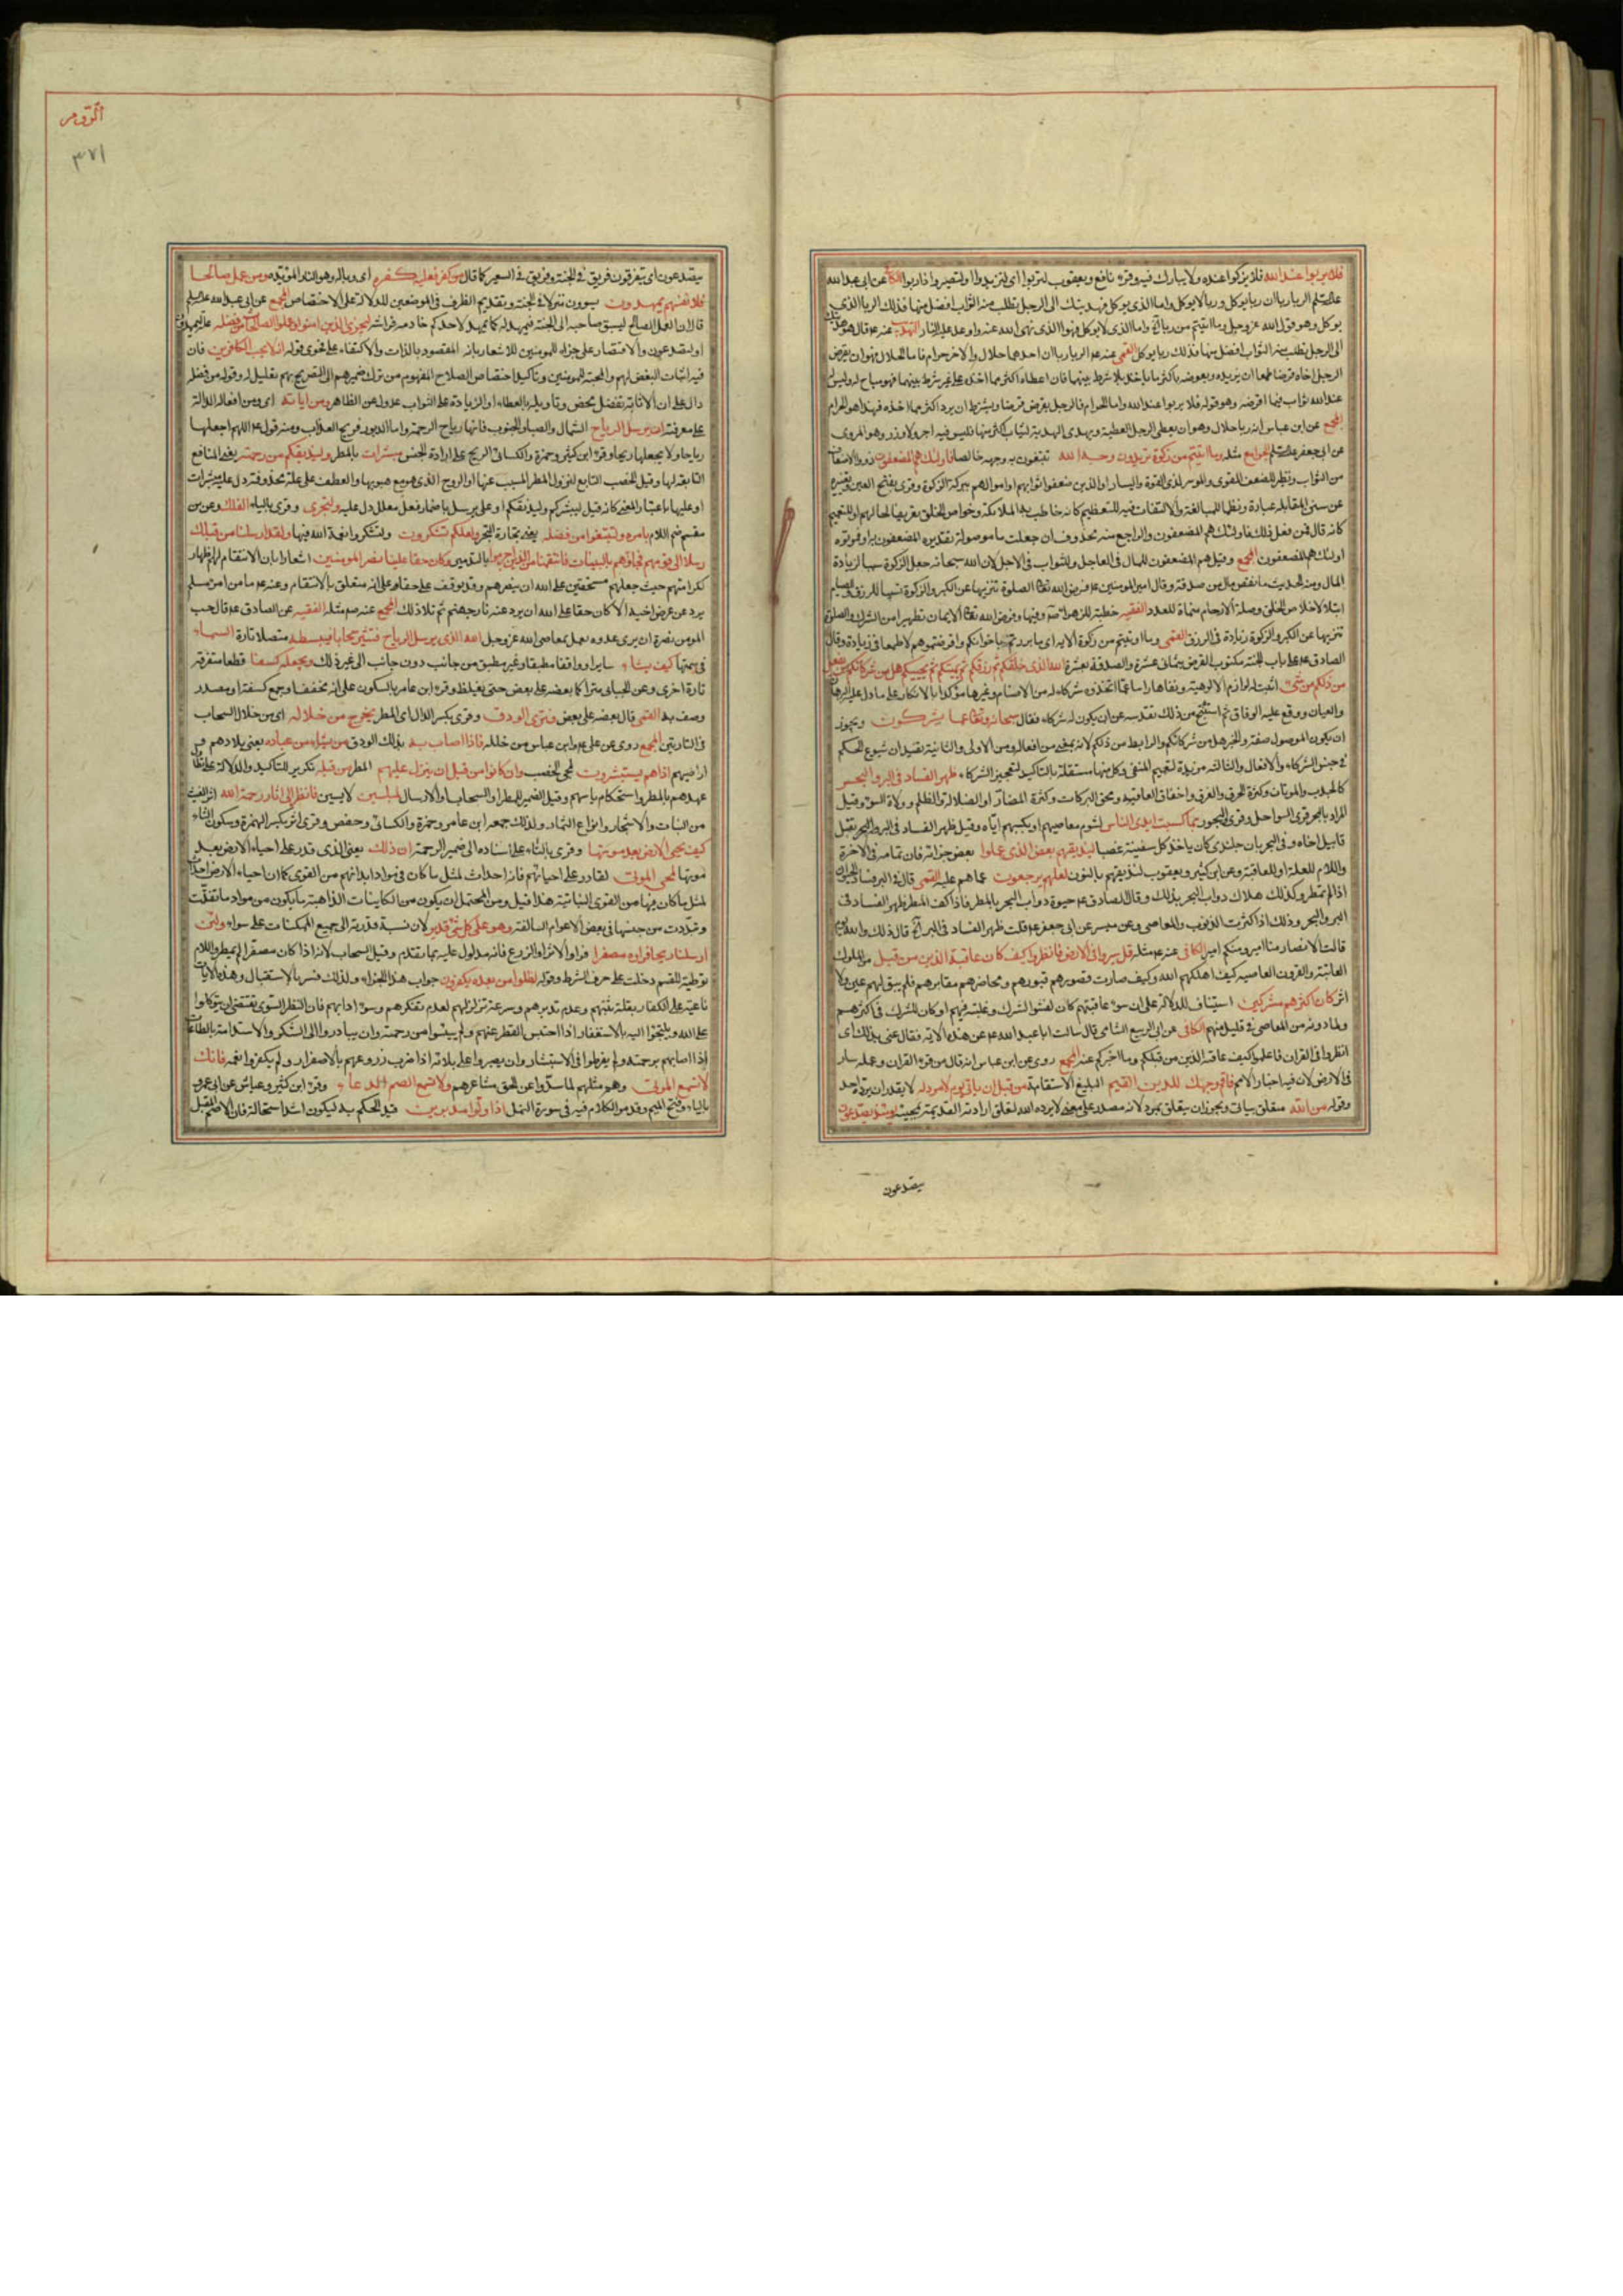 فلا يربوا عند الله فلا يزكوا عنده ولا يبارك فيه وقرء نافع ويعقوب لتربوا اى لتزيدوا او لتصيروا ذا ربوا الكافى عن ابى عبد الله
عليه السلم الربا رباان ربا يوكل وربا لا يوكل واما الذى يوكل فهديتك الى الرجل تطلب منه الثواب افضل منها فذلك الربا الذى
يوكل وهو قول الله عز وجل وما اتيتم من ربا الخ واما الذى لا يوكل فهو الذى نهى الله عنه واوعد عليه النار التهذيب عنه ع قال هو هديتك
الى الرجل تطلب منه الثواب افضل منها فذلك ربا يوكل القمى عنه ع الربا رباان احدهما حلال والاخر حرام فاما الحلال فهو ان يقرض
الرجل اخاه قرضا طمعا ان يزيده ويعوضه باكثر ما ياخذه بلا شرط بينهما فان اعطاه اكثر مما اخذه على غير شرط بينهما فهو مباح له وليس له
عند الله ثواب فيما اقرضه وهو قوله فلا يربوا عند الله واما الحرام فالرجل يقرض قرضا ويشترط ان يرد اكثر مما اخذه فهذا هو الحرام
المجمع عن ابن عباس انه ربا حلال وهو ان يعطى الرجل العطية ويهدى الهدية ليثاب اكثر منها فليس فيه اجر ولا وزر وهو المروى
عن ابى جعفر عليه السلم الجوامع مثله وما اتيتم من زكوة تريدون وجه الله تبتغون به وجهه خالصا فاولئك هم المضعفون ذوو الاضعاف
من الثواب ونظير المضعف المقوى والموسر لذى القوة واليسار او الذين ضعفوا ثوابهم او اموالهم ببركة الزكوة وقرى بفتح العين وتغييره
عن سنن المقابلة عبارة ونظما للمبالغة والالتفات فيه للتعظيم كانه خاطب به الملائكة وخواص الخلق تعريفا لحالهم او للتعميم
كانه قال فمن فعل ذلك فاولئك هم المضعفون والراجع منه محذوف ان جعلت ما موصولة تقديره المضعفون به او فموتوه
اولئك هم المضعفون المجمع وقيل هم المضعفون للمال فى العاجل وللثواب فى الاجل لان الله سبحانه جعل الزكوة سببا لزيادة
المال ومنه الحديث ما نقص مال من صدقة وقال امير المومنين ع فرض الله تعالى الصلوة تنزيها عن الكبر والزكوة تسبيبا للرزق والصيام
ابتلاء لاخلاص الخلق وصلة الارحام منماة للعدد الفقيه خطبة للزهراء ص وفيها وفرض الله تعالى الايمان تطهيرا من الشرك والصلوة
تنزيها عن الكبر والزكوة زيادة فى الرزق القمى وما اوتيتم من زكوة الاية اى ما بررتم به اخوانكم واقرضتموهم لا طمعا فى زيادة وقال
الصادق ع على باب الجنة مكتوب القرض بثمانى عشرة والصدقة بعشرة الله الذى خلقكم ثم رزقكم ثم يميتكم ثم يحييكم هل من شركائكم من يفعل
من ذلكم من شىء اثبت له لوازم الالوهية ونفاها راسا عما اتخذوه شركاء له من الاصنام وغيرها مؤكدا بالانكار على ما دل عليه البرهان
والعيان ووقع عليه الوفاق ثم استنتج من ذلك تقدسه عن ان يكون له شركاء فقال سبحانه وتعالى عما يشركون ويجوز
ان يكون الموصول صفة والخبر هل من شركائكم والرابط من ذلكم لانه بمعنى من افعاله ومن الاولى والثانية تفيدان شيوع الحكم
فى جنس الشركاء والافعال والثالثة مزيدة لتعميم المنفى وكل منها مستقلة بالتاكيد لتعجيز الشركاء ظهر الفساد فى البر والبحر
كالجدب والموتان وكثرة الحرق والغرق واخفاق الغاصة ومحق البركات وكثرة المضار او الضلالة والظلم وولاة السوء وقيل
المراد بالبحر قرى السواحل وقرى البحور بما كسبت ايدى الناس لشوم معاصيهم او بكسبهم اياه وقيل ظهر الفساد فى البر والبحر بقتل
قابيل اخاه وفى البحر بان جلندى كان ياخذ كل سفينة غصبا ليذيقهم بعض الذى عملوا بعض جزائه فان تمامه فى الاخرة
واللام للعلة او للعاقبة وعن ابن كثير ويعقوب لنذيقهم بالنون لعلهم يرجعون عما هم عليه القمى قال فى البر فساد الحيوان
اذا لم يمطر وكذلك هلاك دواب البحر بذلك وقال الصادق ع حيوة دواب البحر بالمطر فاذا كف المطر ظهر الفساد فى
البر والبحر وذلك اذا كثرت الذنوب والمعاصى وعن ميسر عن ابى جعفر ع قلت ظهر الفساد فى البر الخ قال ذلك والله يوم
قالت الانصار منا امير ومنكم امير الكافى عنه ع مثله قل سيروا فى الارض فانظروا كيف كان عاقبة الذين من قبل من الملوك
العاتية والقرون العاصية كيف اهلكهم الله وكيف صارت قصورهم قبورهم ومحاضرهم مقابرهم فلم يبق لهم عين ولا
اثر كان اكثرهم مشركين استيناف للدلالة على ان سوء عاقبتهم كان لفشو الشرك وغلبته فيهم او كان للشرك فى اكثرهم
ولما دونه من المعاصى فى قليل منهم الكافى عن ابى الربيع الشامى قال سالت ابا عبد الله ع عن هذه الاية فقال عنى بذلك اى
انظروا فى القران فاعلموا كيف عاقبة الذين من قبلكم وما اخبركم عنه المجمع روى عن ابن عباس انه قال من قرء القران وعمله سار
فى الارض لان فيه اخبار الامم فاقم وجهك للدين القيم البليغ الاستقامة من قبل ان ياتى يوم لا مرد له لا يقدر ان يرده احد
وقوله من الله متعلق بياتى ويجوز ان يتعلق بمرد لانه مصدر على معنى لا يرده الله لتعلق ارادته القديمة بمجيئه يومئذ يصدعون
يصدعون
الروم
٣٧١
يصدعون اى يتفرقون فريق فى الجنة وفريق فى السعير كما قال من كفر فعليه كفره اى وباله وهو النار المؤبدة ومن عمل صالحا
فلانفسهم يمهدون يسوون منزلا فى الجنة وتقديم الظرف فى الموضعين للدلالة على الاختصاص المجمع عن ابى عبد الله عليه السلم
قال ان العمل الصالح ليسبق صاحبه الى الجنة فيمهد له كما يمهد لاحدكم خادمه فراشه ليجزى الذين امنوا وعملوا الصالحات من فضله علة ليمهدون
او ليصدعون والاقتصار على جزاء المومنين للاشعار بانه المقصود بالذات والاكتفاء على فحوى قوله انه لا يحب الكافرين فان
فيه اثبات البغض لهم والمحبة للمومنين وتاكيد اختصاص الصلاح المفهوم من ترك ضميرهم الى التصريح بهم تعليل له وقوله من فضله
دال على ان الاثابة تفضل محض وتاويله بالعطاء او الزيادة على الثواب عدول عن الظاهر ومن اياته اى ومن افعاله الدالة
على معرفته ان يرسل الرياح الشمال والصبا والجنوب فانها رياح الرحمة واما الدبور فريح العذاب ومنه قول ع اللهم اجعلها
رياحا ولا تجعلها ريحا وقرء ابن كثير وحمزة والكسائى الريح على ارادة الجنس مبشرات بالمطر وليذيقكم من رحمته يعنى المنافع
التابعة لها وقيل الخصب التابع لنزول المطر المسبب عنها او الروح الذى هو مع هبوبها والعطف على علة محذوفة دل عليه مبشرات
او عليها باعتبار المعنى كانه قيل ليبشركم وليذيقكم او على يرسل باضمار فعل معلل دل عليه ولتجرى وقرى بالياء الفلك وعن من
بامره ولتبتغوا من فضله يعنى تجارة البحر ولعلكم تشكرون ولتشكروا نعمة الله فيها ولقد ارسلنا من قبلك
رسلا الى قومهم فجاؤهم بالبينات فانتقمنا من الذين اجرموا بالتدمير وكان حقا علينا نصر المومنين اشعار بان الانتقام لهم واظهار
لكرامتهم حيث جعلهم مستحقين على الله ان ينصرهم وقد يوقف على حقا وعلى انه متعلق بالانتقام وعنه ع ما من امرء مسلم
يرد عن عرض اخيه الا كان حقا على الله ان يرد عنه نار جهنم ثم تلا ذلك المجمع عنه ص مثله الفقيه عن الصادق ع قال حسب
المومن نصرة ان يرى عدوه يعمل بمعاصى الله عز وجل الله الذى يرسل الرياح فتثير سحابا فيبسطه متصلا تارة السماء
فى سمتها كيف يشاء سايرا وواقفا مطبقا وغير مطبق من جانب دون جانب الى غير ذلك ويجعله كسفا قطعا متفرقة
تارة اخرى وعن الجبائى متراكما بعضه على بعض حتى يغلظ وقرء ابن عامر بالسكون على انه مخفف او جمع كسفة او مصدر
وصف به القمى قال بعضه على بعض فترى الودق وقرى بكسر الدال اى المطر يخرج من خلاله اى من خلال السحاب
فى التارتين المجمع روى عن على ع وابن عباس من خلله فاذا اصاب به بذلك الودق من يشاء من عباده يعنى بلادهم و
اراضيهم اذا هم يستبشرون لمجى الخصب وان كانوا من قبل ان ينزل عليهم المطر من قبله تكرير للتاكيد والدلالة على تطاول
عهدهم بالمطر واستحكام ياسهم وقيل الضمير للمطر او السحاب او الارسال لمبلسين لايسين فانظر الى اثار رحمة الله اثر الغيث
من النبات والاشجار وانواع الثمار ولذلك جمعه ابن عامر وحمزة والكسائى وحفص وقرى اثر بكسر الهمزة وسكون الثاء
كيف يحيى الارض بعد موتها وقرى بالتاء على اسناده الى ضمير الرحمة ان ذلك يعنى الذى قدر على احياء الارض بعد
موتها لمحى الموتى لقادر على احيائهم فانه احداث لمثل ما كان فى مواد ابدانهم من القوى كما ان احياء الارض احداث
لمثل ما كان فيها من القوى النباتية هذا قيل ومن المحتمل ان يكون من الكاينات الذاهبة ما يكون من مواد ما تفتتت
وتبددت من جنسها فى بعض الاعوام السالفة وهو على كل شىء قدير لان نسبة قدرته الى جميع الممكنات على سواء ولئن
ارسلنا ريحا فراوه مصفرا فراوا الاثر او الزرع فانه مدلول عليه بما تقدم وقيل السحاب لانه اذا كان مصفرا لم يمطر واللام
توطية للقسم دخلت على حرف الشرط وقوله لظلوا من بعده يكفرون جواب هذا الجزاء ولذلك فسر بالاستقبال وهذه الايات
ناعية على الكفار بقلة تثبتهم وعدم تدبرهم وسرعة تزلزلهم لعدم تفكرهم وسوء رايهم فان النظر السوى يقتضى ان يتوكلوا
على الله ويلتجؤا اليه بالاستغفار اذا احتبس القطر عنهم ولم ييئسوا من رحمته وان يبادروا الى الشكر والاستدامة بالطاعات
اذا اصابهم برحمته ولم يفرطوا فى الاستبشار وان يصبروا على بلائه اذا ضرب زروعهم بالاصفرار ولم يكفروا نعمه فانك
لا تسمع الموتى وهم مثلهم لما سدوا عن الحق مشاعرهم ولا تسمع الصم الدعاء وقرء ابن كثير وعباس عن ابى عمرو
بالياء وفتح الميم وقد مر الكلام فيه فى سورة النمل اذا ولوا مدبرين قيد الحكم به ليكون اشد استحالة فان الاصم المقبل